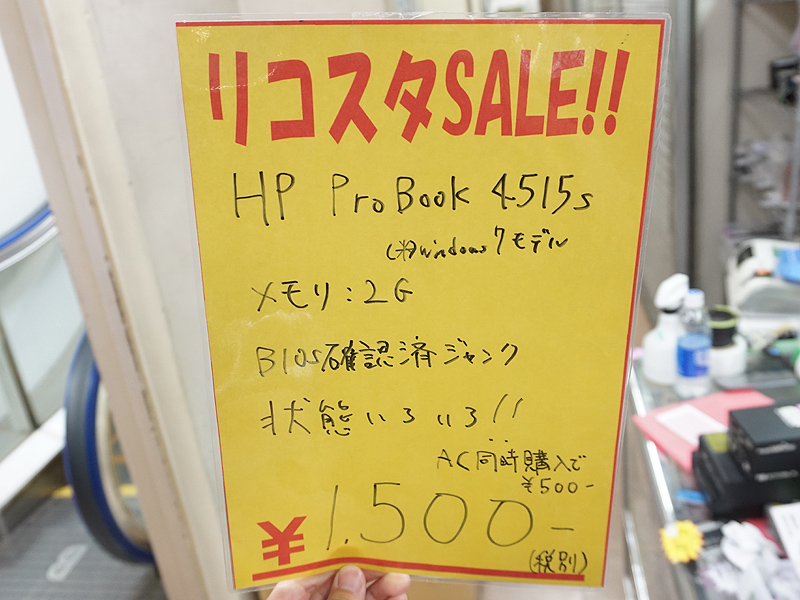 リコスタSALE!!
HP ProBook 4515s
(※)windows7モデル
メモリ:2G
BIOS確認済ジャンク
状態いろいろ!!
AC同時購入で
¥500-
¥1,500-
(税別)